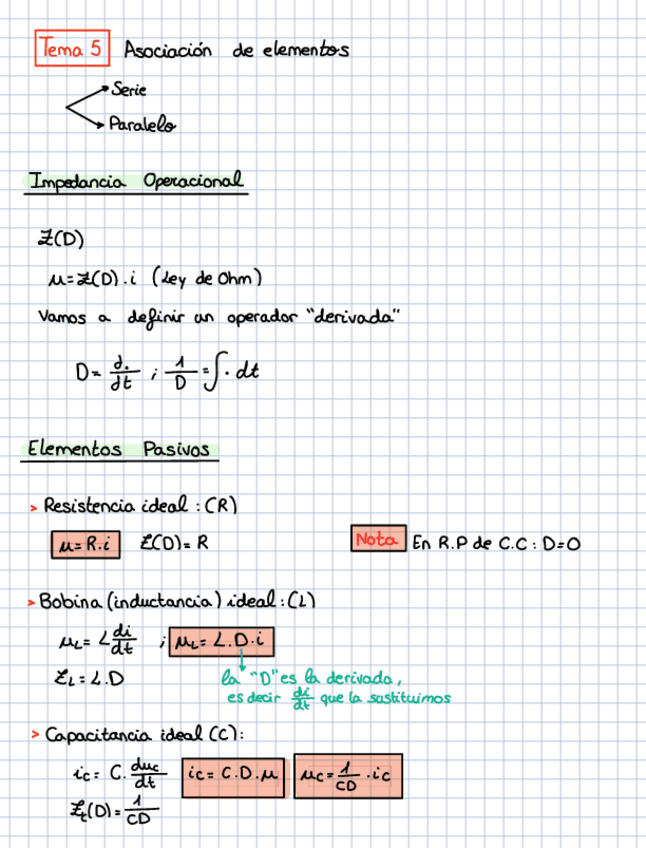 Tema 5 Asociación de elementos
Serie
Paralelo
Impedancia Operacional
Z(D)
u=Z(D).i (Ley de Ohm)
Vamos a definir un operador "derivada"
D= d·/dt ; 1/D = ∫· dt
Elementos Pasivos
> Resistencia ideal : (R)
u=R.i Z(D)=R Nota En R.P de C.C : D=0
> Bobina (inductancia) ideal : (L)
uL= L di/dt ; uL= L.D.i
ZL= L.D la "D" es la derivada,
es decir di/dt que la sustituimos
> Capacitancia ideal (C):
ic= C. duc/dt ic= C.D.u uc= 1/CD .ic
Zt(D)= 1/CD